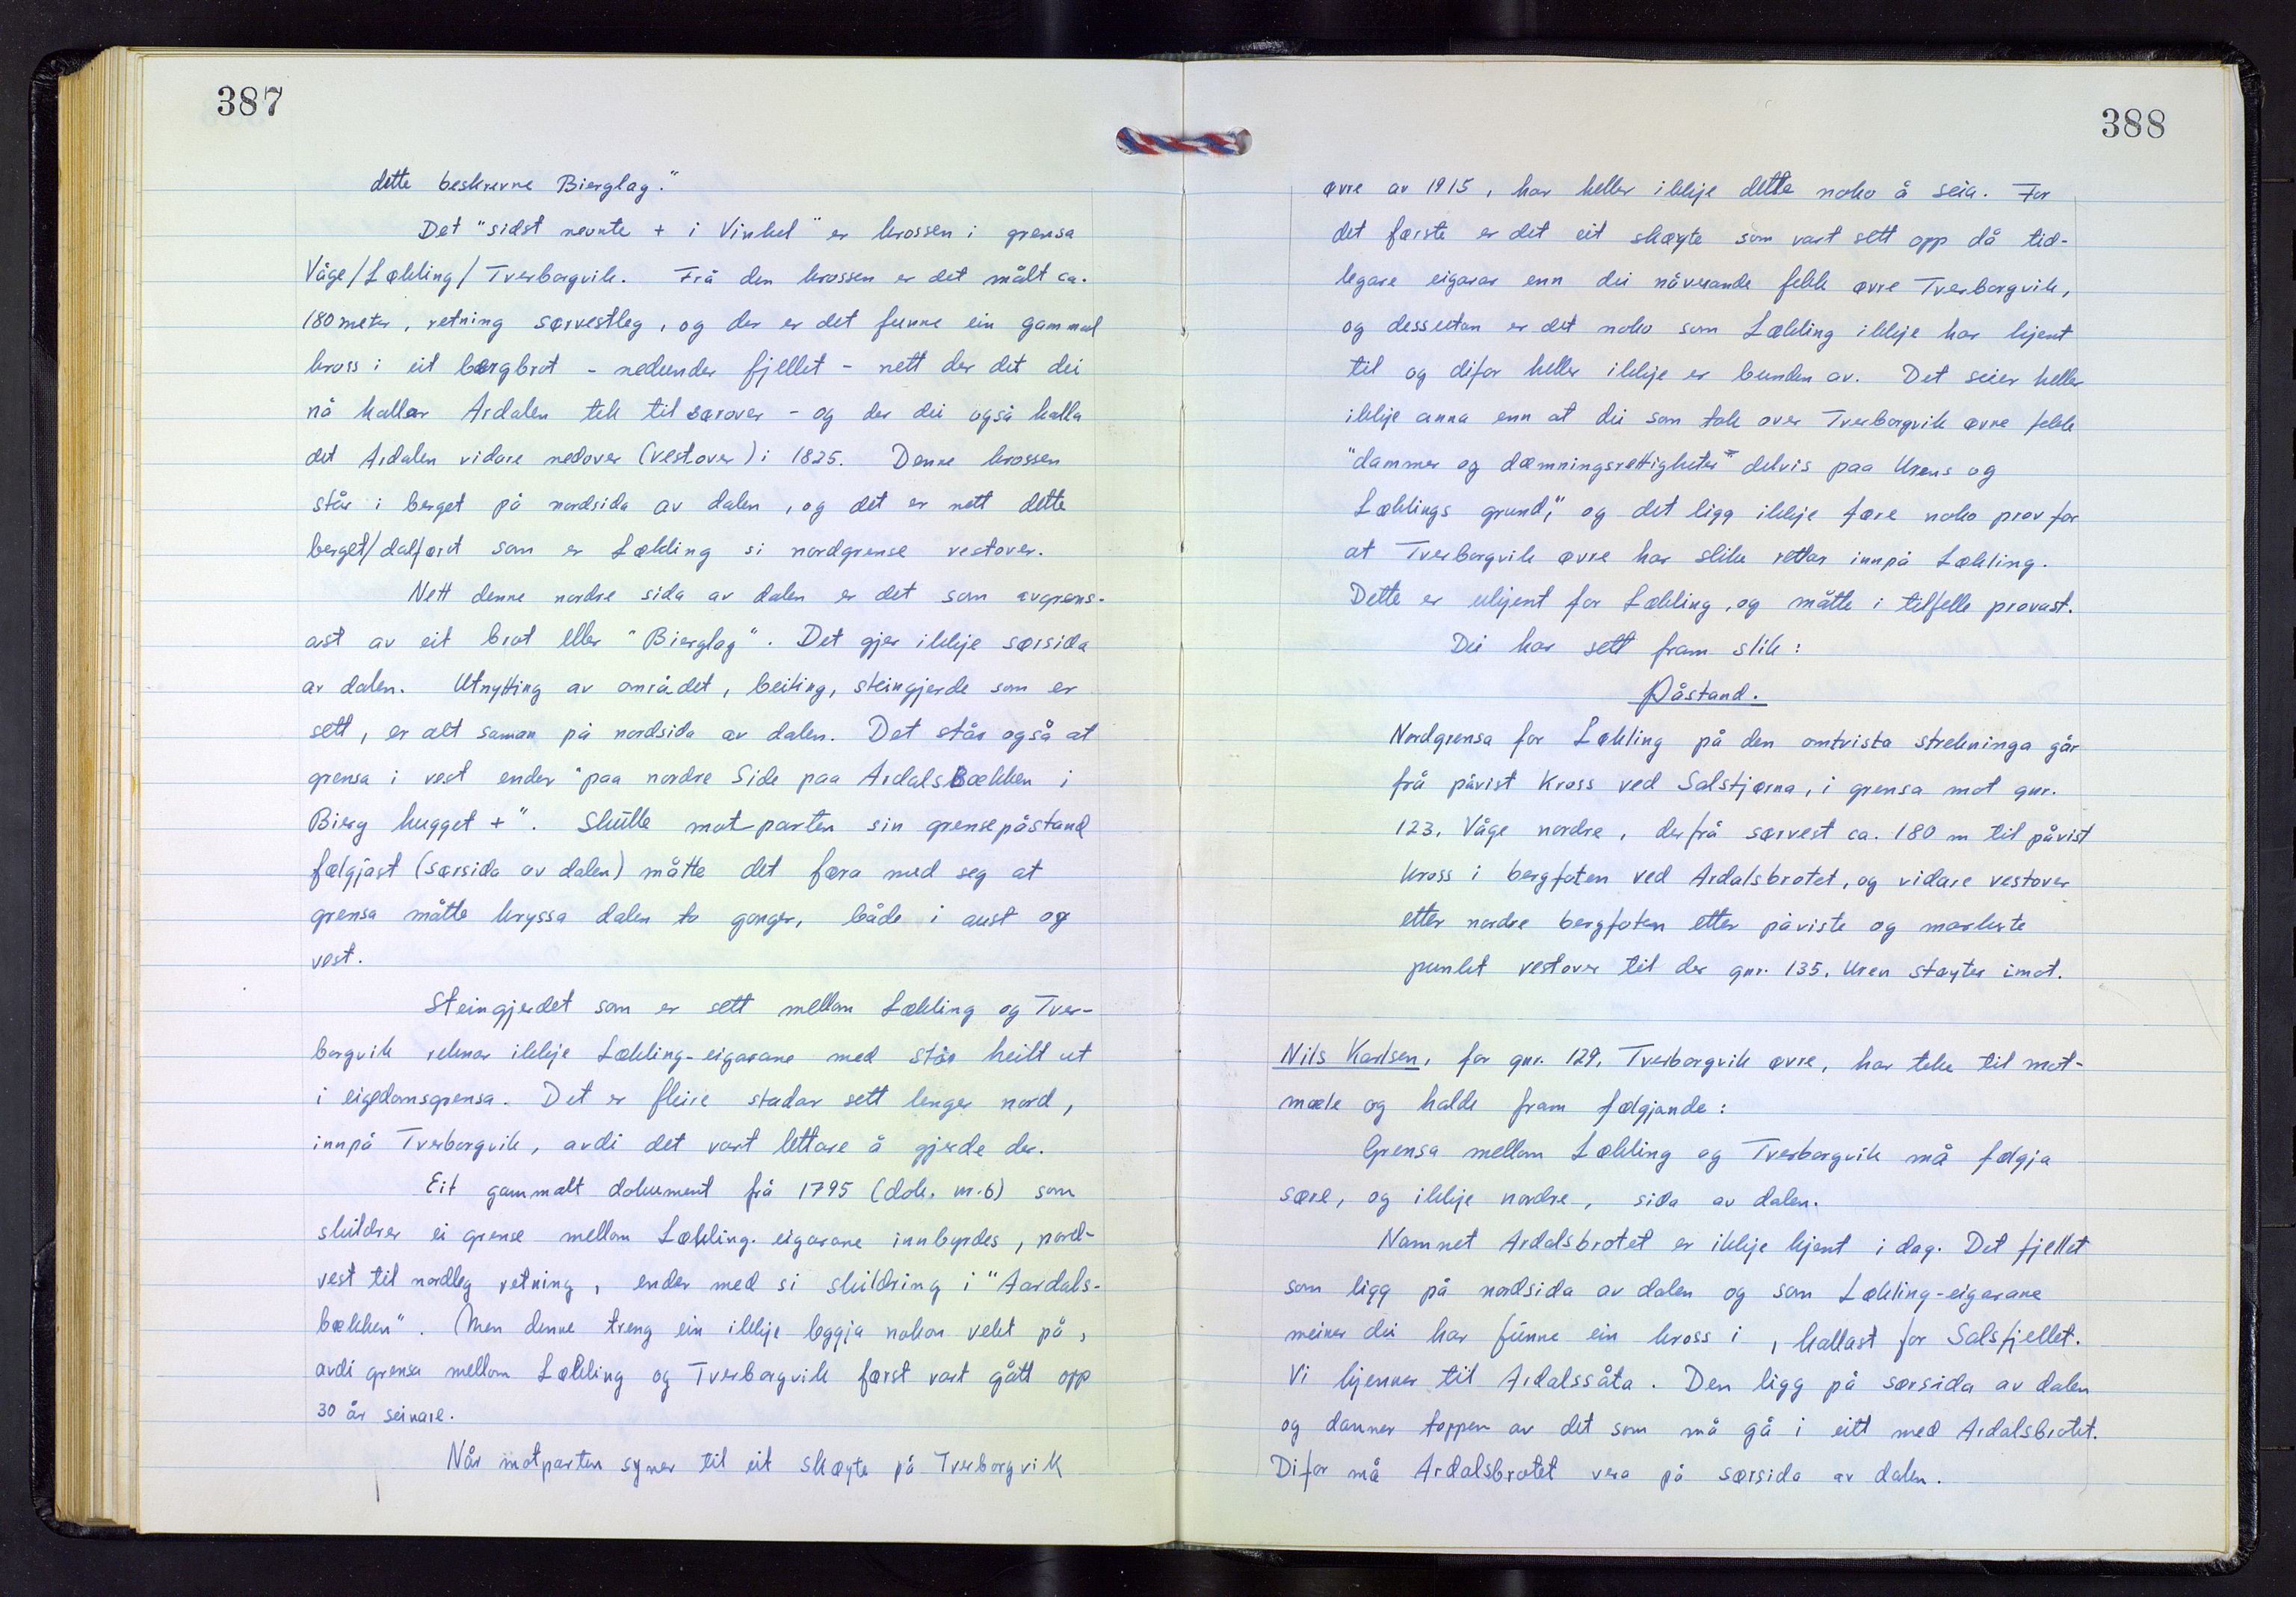 387
dette beskrevne Bierglag."
Det "sidst nevnte + i Vinkel" er krossen i grensa
Våge/Løkling/Tverborgvik. Frå den krossen er det målt ca.
180 meter, retning sørvestleg, og der er det funne ein gammal
kross i eit bergbrot - nedunder fjellet - nett der det dei
nå kallar Ardalen tek til sørover - og der dei også kalla
det Ardalen vidare nedover (vestover) i 1825. Denne krossen
står i berget på nordsida av dalen, og det er nett dette
berget/dalføret som er Løkling si nordgrense vestover.
Nett denne nordre sida av dalen er det som avgrens-
ast av eit brot eller "Bierglag". Det gjer ikkje sørsida
av dalen. Utnytting av området, beiting, steingjerde som er
sett, er alt saman på nordsida av dalen. Det står også at
grensa i vest ender "paa nordre Side paa ArdalsBækken i
Bierg hugget +". Skulle motparten sin grensepåstand
følgjast (sørsida av dalen) måtte det føra med seg at
grensa måtte kryssa dalen to gonger, både i aust og
vest.
Steingjerdet som er sett mellom Løkling og Tver-
borgvik reknar ikkje Løkling-eigarane med står heilt ut
i eigedomsgrensa. Det er fleire stadar sett lenger nord,
innpå Tverborgvik, avdi det vart lettare å gjerde der.
Eit gammalt dokument frå 1795 (dok. nr. 6) som
skildrer ei grense mellom Løkling-eigarane innbyrdes, nord-
vest til nordleg retning, ender med si skildring i "Aardals-
bækken". Men denne treng ein ikkje leggja nokon vekt på,
avdi grensa mellom Løkling og Tverborgvik først vart gått opp
30 år seinare.
Når motparten syner til eit skøyte på Tverborgvik
388
øvre av 1915, har heller ikkje dette noko å seia. For
det første er det eit skøyte som vart sett opp då tid-
legare eigarar enn dei nåverande fekk øvre Tverborgvik,
og dessutan er det noko som Løkling ikkje har kjent
til og difor heller ikkje er bunden av. Det seier heller
ikkje anna enn at dei som tok over Tverborgvik øvre fekk
"dammer og dæmningsrettigheter" delvis paa Urens og
Løklings grund," og det ligg ikkje føre noko prov for
at Tverborgvik øvre har slike rettar innpå Løkling.
Dette er ukjent for Løkling, og måtte i tilfelle provast.
Dei har sett fram slik:
Påstand.
Nordgrensa for Løkling på den omtvista strekninga går
frå påvist kross ved Salstjørna, i grensa mot gnr.
123, Våge nordre, derfrå sørvest ca. 180 m til påvist
kross i bergfoten ved Ardalsbrotet, og vidare vestover
etter nordre bergfoten etter påviste og markerte
punkt vestover til der gnr. 135, Uren støyter imot.
Nils Karlsen, for gnr. 129, Tverborgvik øvre, har teke til mot-
mæle og halde fram følgjande:
Grensa mellom Løkling og Tverborgvik må følgja
søre, og ikkje nordre, sida av dalen.
Namnet Ardalsbrotet er ikkje kjent i dag. Det fjellet
som ligg på nordsida av dalen og som Løkling-eigarane
meiner dei har funne ein kross i, kallast for Salsfjellet.
Vi kjenner til Ardalssåta. Den ligg på sørsida av dalen
og danner toppen av det som må gå i eitt med Ardalsbrotet.
Difor må Ardalsbrotet vera på sørsida av dalen.